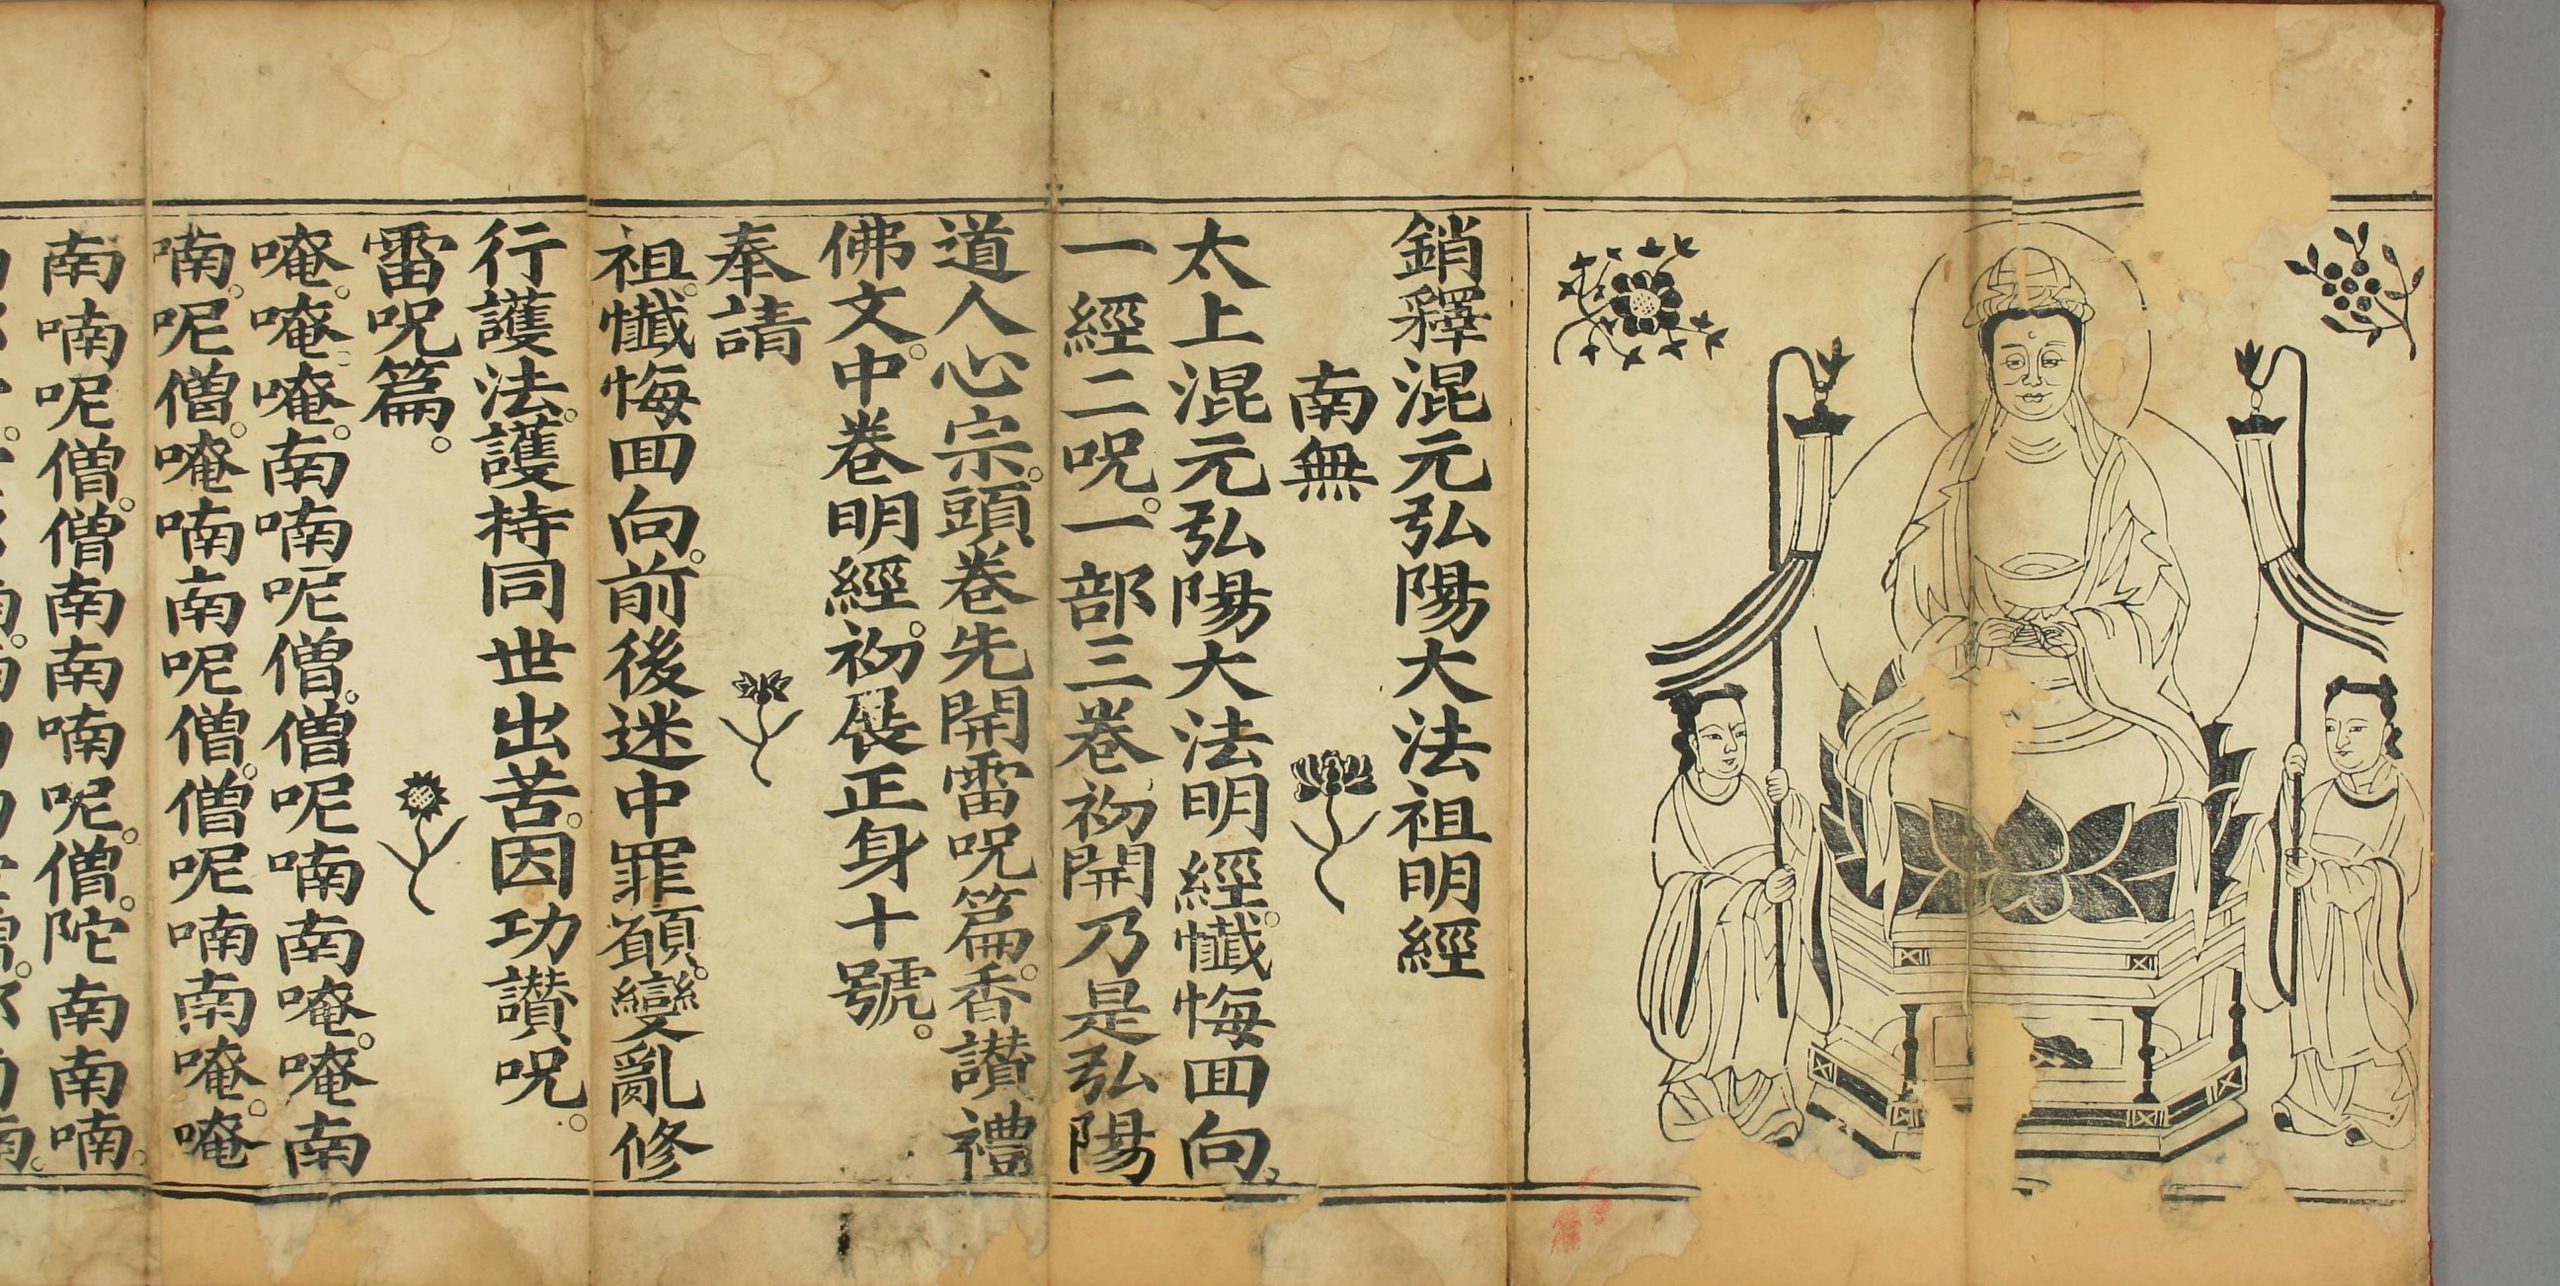 銷釋混元弘陽大法祖明經
南無
太上混元弘陽大法明經。懺悔囬向。
一經二呪。一部三卷初開乃是弘陽
道人心宗。頭卷先開雷呪篇。香讃禮
佛文。中卷明經。初展正身十號。
奉請
祖。懺悔囬向。前後迷中罪願。變亂修
行護法。護持同世出苦。因功讃呪。
雷呪篇。
唵。唵。唵。南喃呢僧。僧呢喃南唵。唵南
喃。呢僧。唵喃南呢僧。僧呢喃南唵。唵
南喃呢僧。僧南南喃呢。僧。陀南南喃。